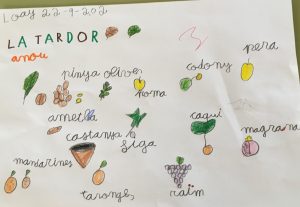 Loay 22-9-202
LA TARDOR
anou
pera
codony
pinya olives
poma
ametlla
caqui
castanya
magrana
figa
mandarines
taronges
raïm